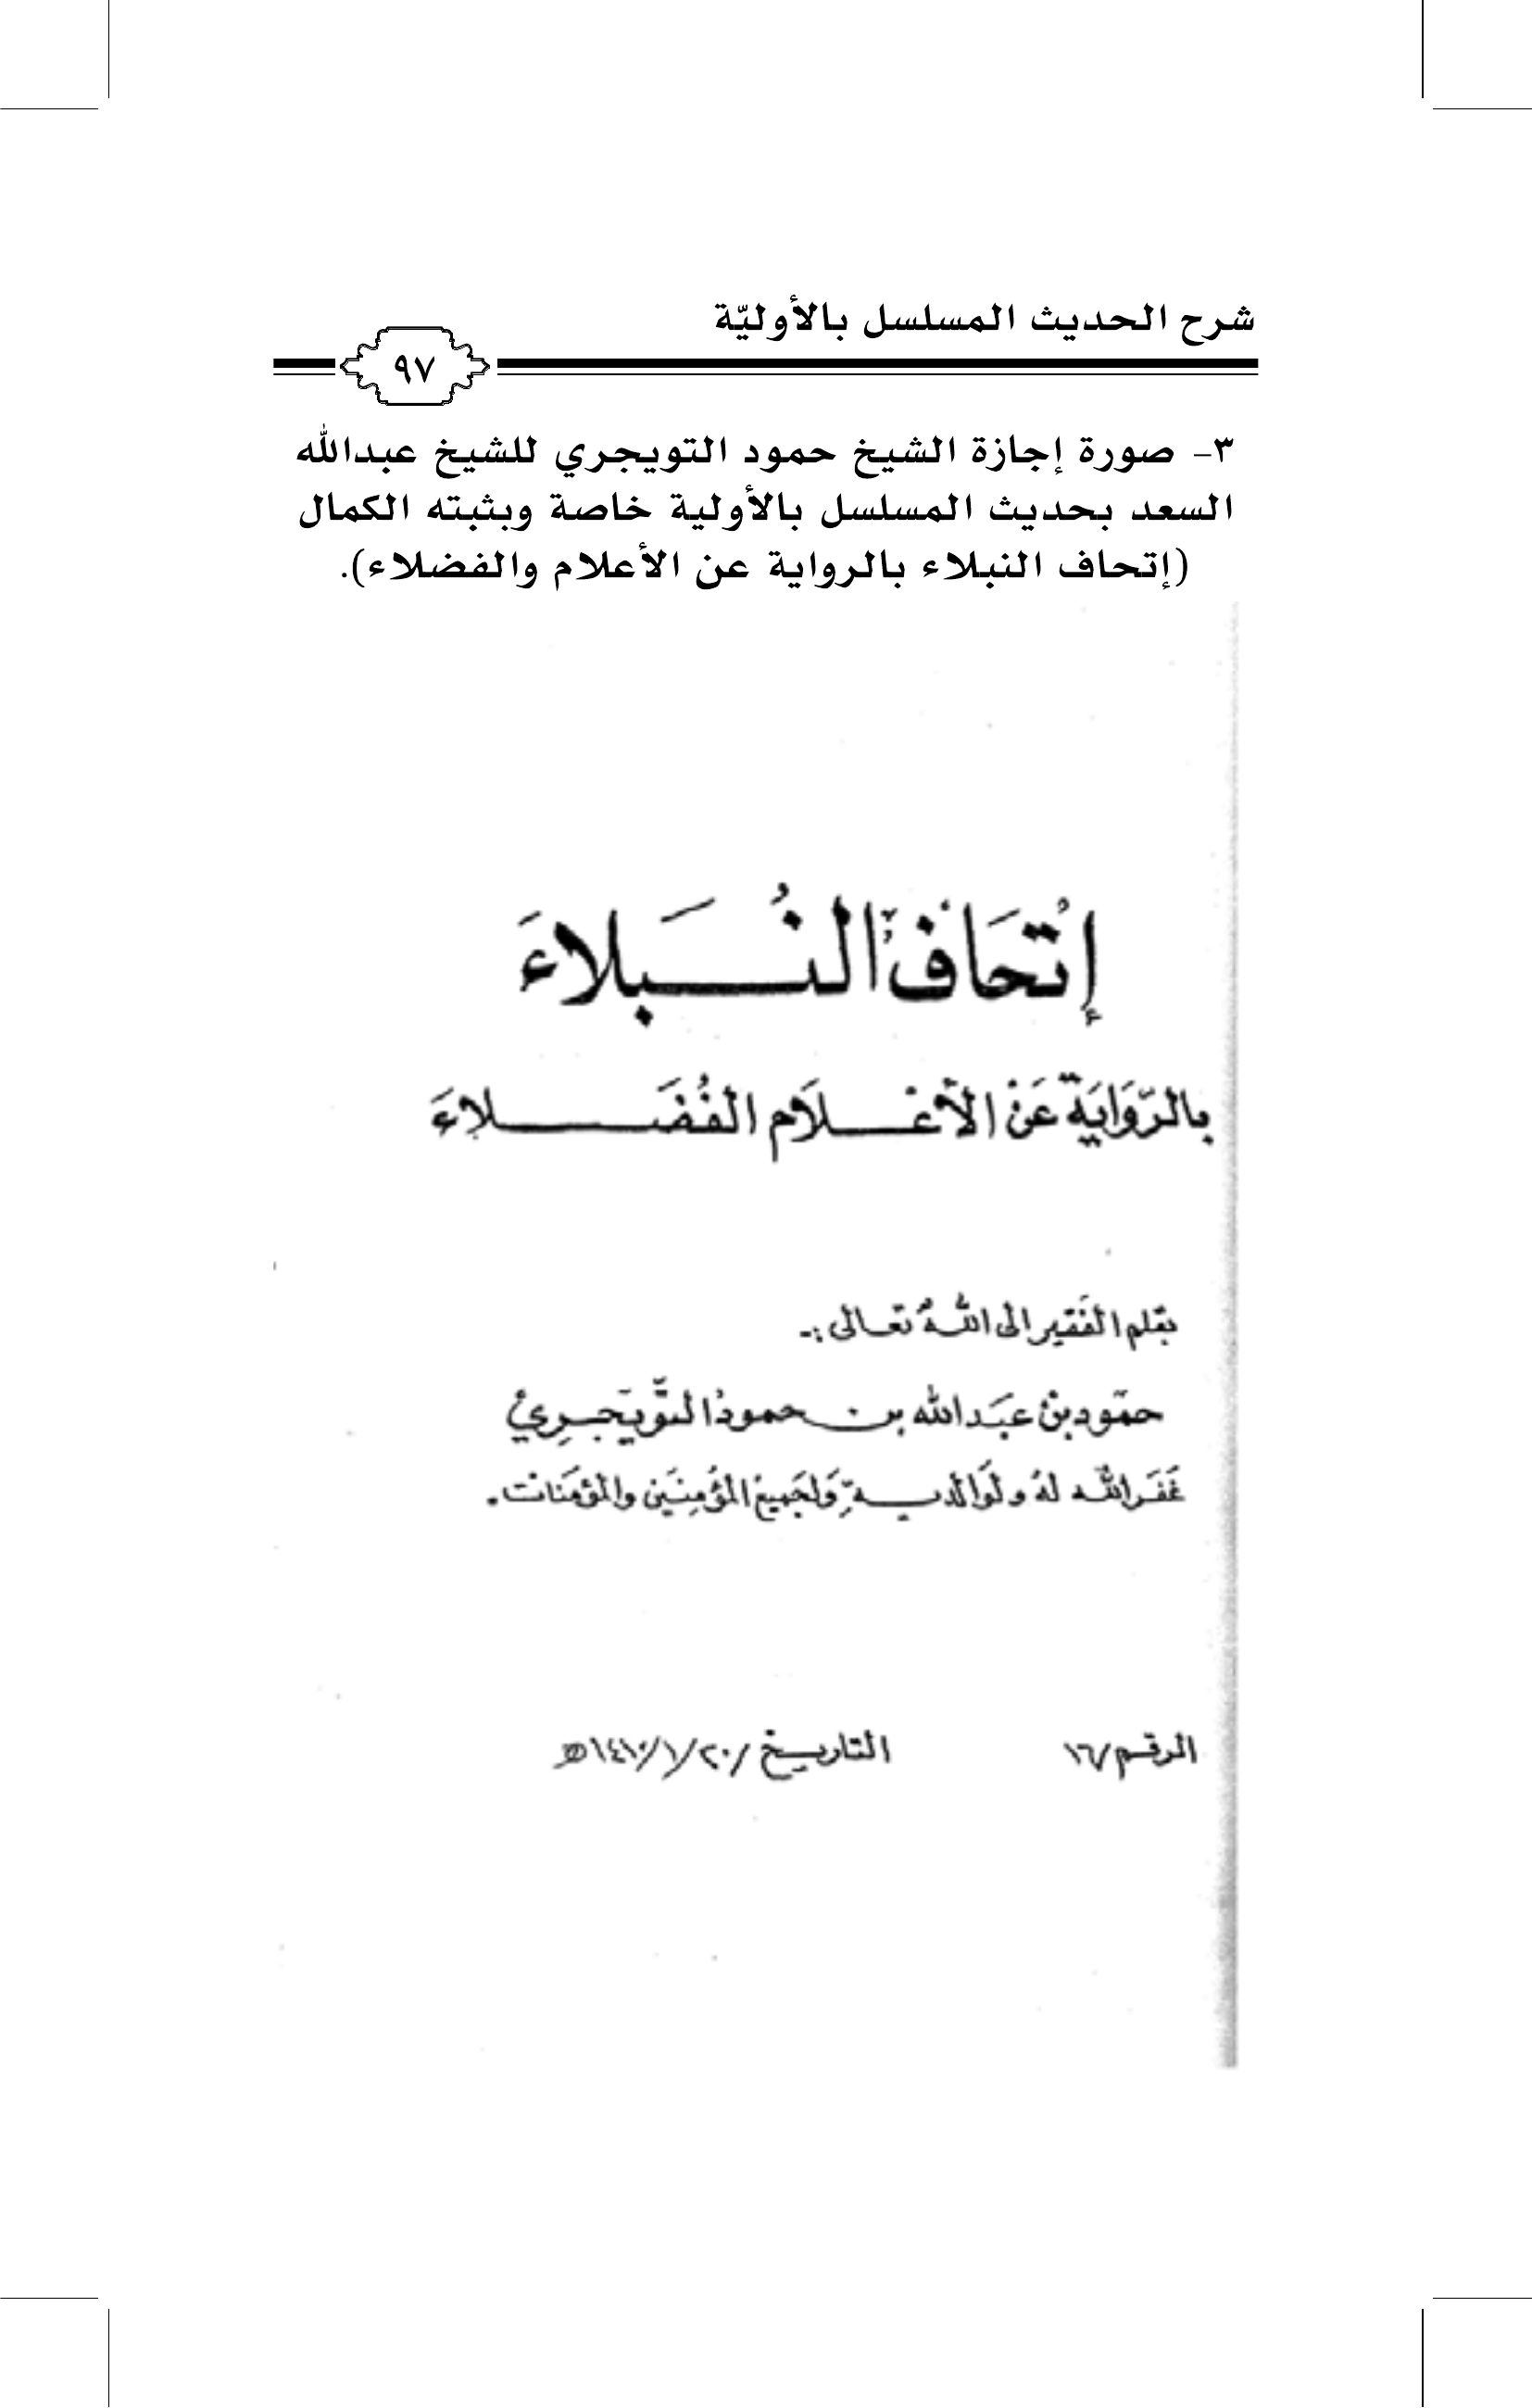 شرح الحديث المسلسل بالأوليّة
٩٧
٣- صورة إجازة الشيخ حمود التويجري للشيخ عبدالله
السعد بحديث المسلسل بالأولية خاصة وبثبته الكمال
(إتحاف النبلاء بالرواية عن الأعلام والفضلاء).
إتْحَافُ النُّبَلاءَ
بالرِّوَايَة عَنْ الأَعْلَام الفُضَلاءَ
بقلم الفَقير الى اللهُ تعَالى :-
حمّود بنْ عبَد الله بن حمودُ التّويجري
غفَر اللهُ لهُ ولوَالديهِ وَلجَميع المؤمِنَين والمؤمنَات .
الرقم / ١٦
التاريخ / ٢٠ / ١ / ١٤١٠ هـ